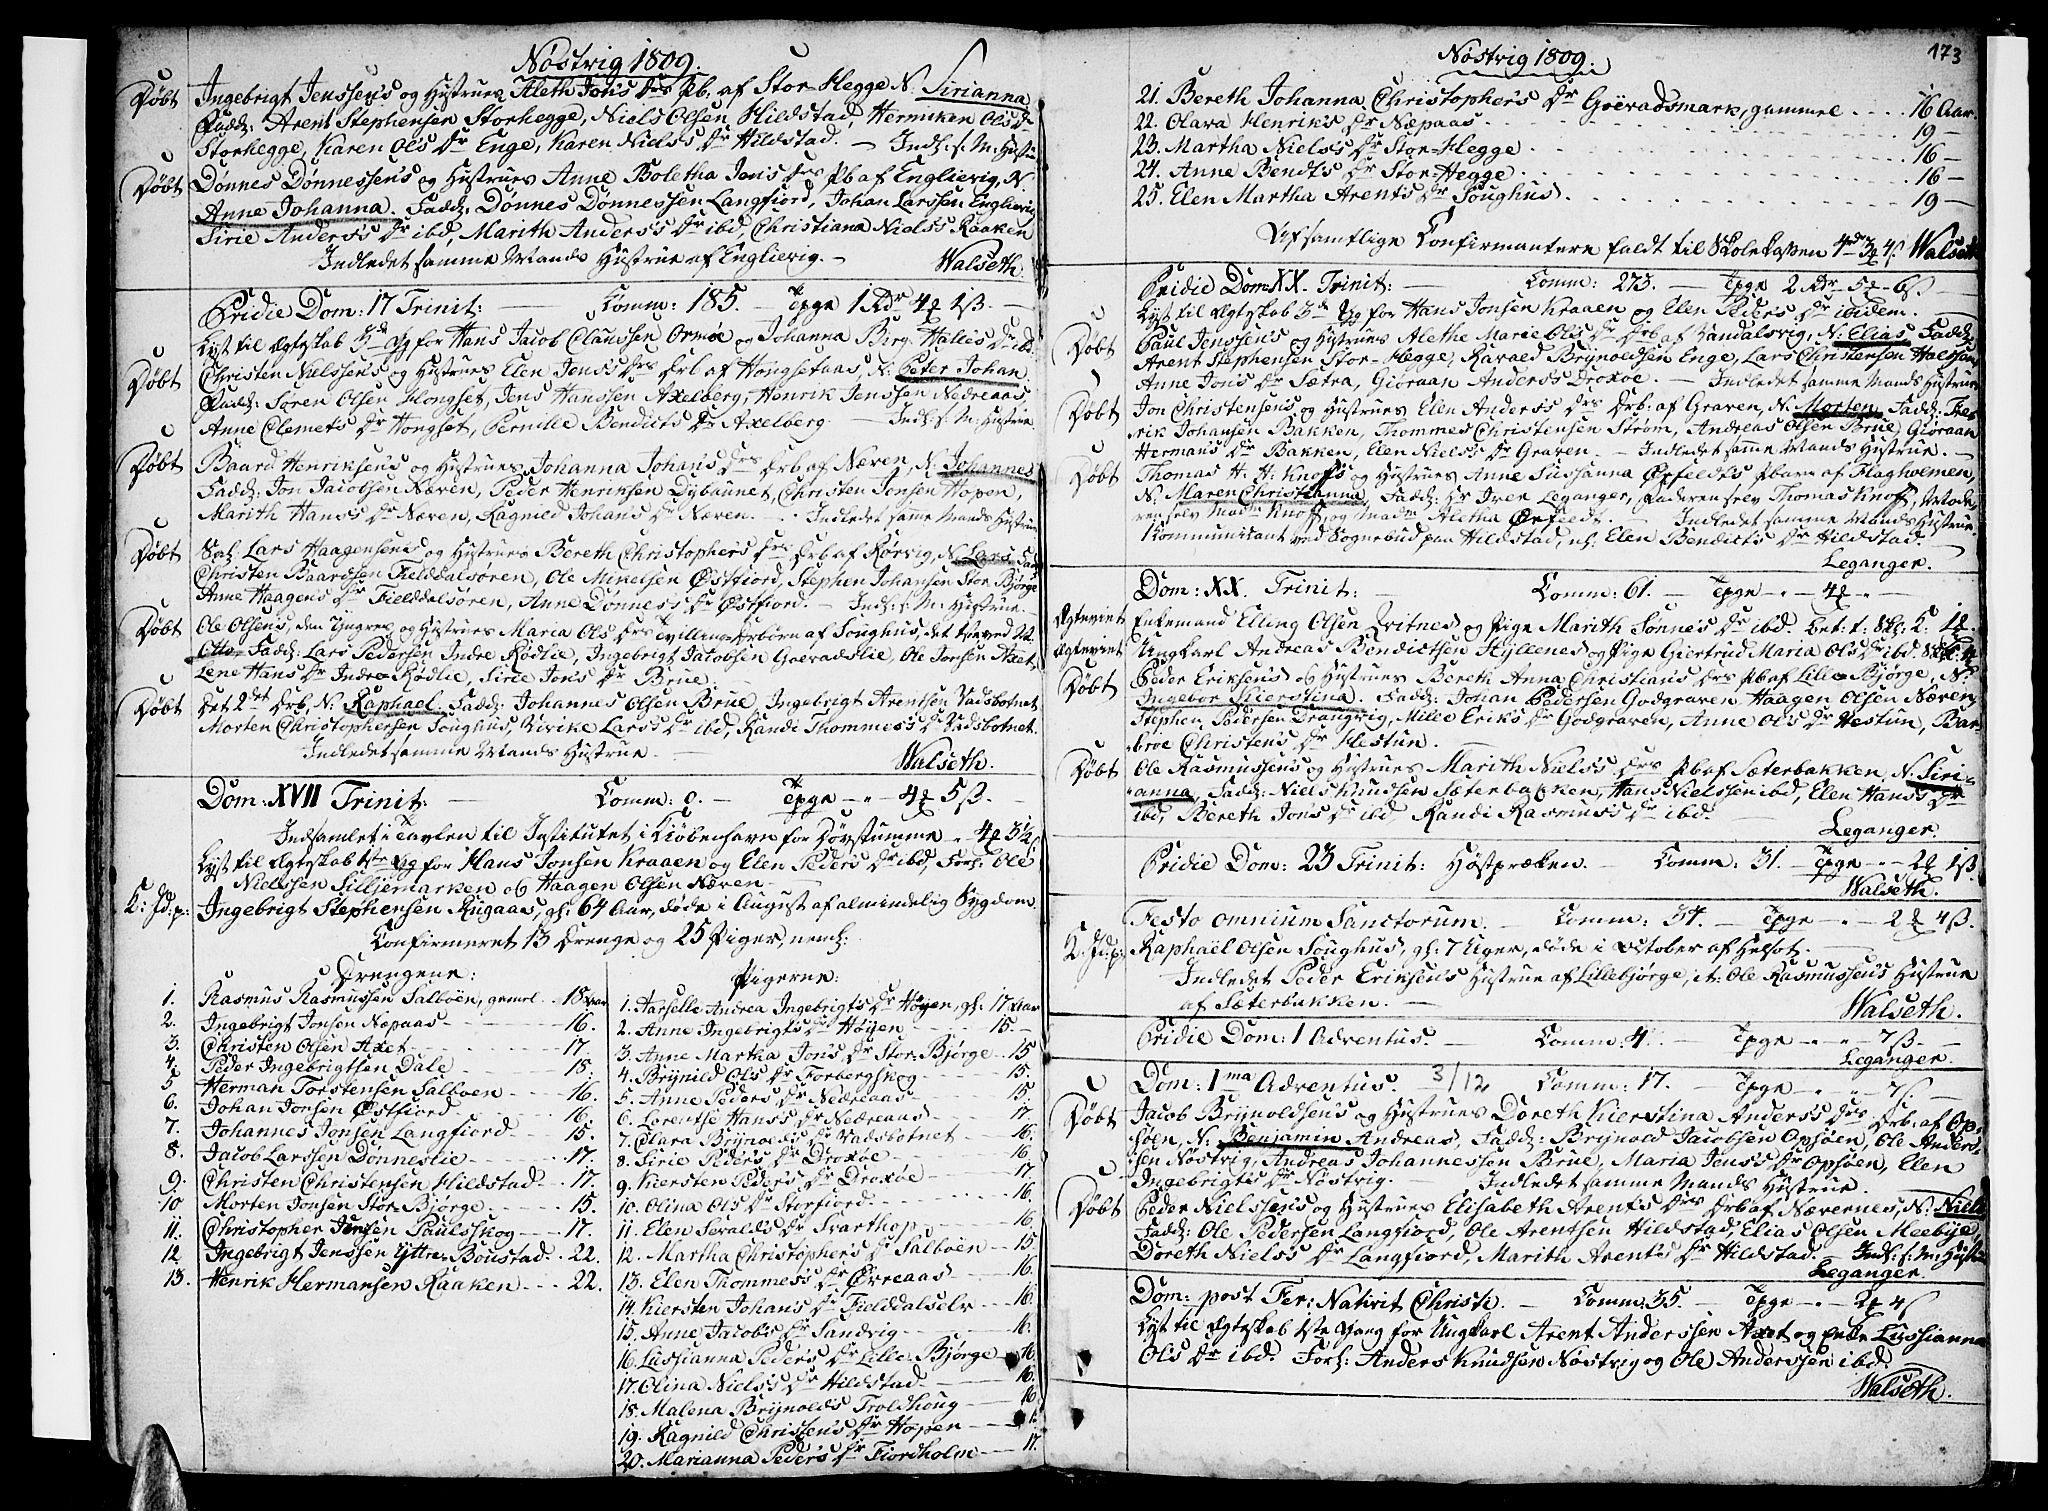 Nøstrig 1809.
Døbt
Ingebrigt Jenssøns og Hustrues Aleth Jons Drs Pb. af Stor-Hegge N. Sirianna
Fadd: Arent Stephensen Storhegge, Niels Olsen Hildstad, Hermiken Ols Dr
Storhegge, Karen Ols Dr Enge, Karen Niels's Dr Hildstad. — Indl: s: M: Hustrue
Døbt
Dønnes Dønnessen's og Hustrues Anne Boletha Jon's Drs Pb af Englievig, N.
Anne Johanna. Fadd: Dønnes Dønnessen Langfiord, Johan Larssen Englievig
Sirie Anders's Dr ibd, Marith Anders's Dr ibd, Christiana Niels's Kaaken
Indledet samme Mands Hustrue af Englievig. — Walseth
Pridie Dom: 17 Trinit: — Comm: 185. — Tpge 1 Rdr 4 ß —
Lyst til Ægteskab 3de Gg for Hans Jacob Claussen Ormøe og Johanna Birg. Halles Dr ibd
Døbt
Christen Nielssen's og Hustrues Elen Jons's Drs Drb af Hongsetaas, N: Peter Johan
Fadd: Søren Olsen Hongset, Jens Hanssen Axelberg, Henrik Jenssen Nedreaas
Anne Clemets Dr Hongset, Pernille Bendicts Dr Axelberg — Indl: s: M: Hustrue
Døbt
Baard Henriksens og Hustrues Johanna Johans Drs Drb af Næren, N. Johannes
Fadd: Jon Jacobsen Næren, Peder Henriksen Dybaunet, Christen Jonsen Hopen,
Marith Hans's Dr Næren, Ragnild Johans Dr Næren. — Indledet samme Mands Hustrue
Døbt
Sal. Lars Haagensens og Hustrues Bereth Christopher's Drs Drb af Rørvig, N. Lars Fadd
Christen Baardsen Fielddalsøren, Ole Mikelsen Østfiord, Stephen Johansen Stor Bjørge
Anne Haagens Dr Fielddalsøren, Anne Dønnes's Dr Østfiord. — Indl: s: M: Hustrue.
Døbt
Ole Olsens, den Yngres og Hustrues Maria Ols Drs Tvilling-Børn af Soughus, det 1ste ved N.
Otto. Fadd: Lars Pedersen Indre Rødlie, Ingebrigt Jacobsen Goevadslie, Ole Jonsen Axet,
Lene Hans Dr Indre Rødlie, Sirie Jon's Dr Brue. —
Døbt
Det 2det Drb, N: Raphael. Fadd: Johannes Olsen Brue, Ingebrigt Arentsen Vadsbotnet
Morten Christophersen Soughus, Birike Lars's Dr ibd, Randi Thommes's Dr Vadsbotnet.
Indledet samme Mands Hustrue. — Walseth.
Dom: XVII Trinit: — Comm: 0. — Tpge — " 4 5ß —
Indsamlet i Tavlen til Institutet i Kiøbenhavn for Døvstumme " 4 3½
Lyst til Ægteskab 1ste Gg for Hans Jonsen Kraaen og Elen Peders Dr ibd, Forl: Ole
Nielssen Silljemarken og Haagen Olsen Næren —
K: Jd: p:
Ingebrigt Stephensen Rugaas, gl: 64 Aar, døde i August af almindelig Sygdom
Confirmeret 13 Drenge og 25 Piger, neml:
Drengene:
1. Rasmus Rasmussen Salbøen, gaml. 18 Aar
2. Ingebrigt Jonsen Næpaas — 16.
3. Christen Olsen Axet — 17.
4. Peder Ingebrigtsen Dale — 18.
5 Herman Torstensen Salbøen — 16.
6. Johan Jonsen Østfiord — 16.
7. Johannes Jonsen Langfiord — 15.
8. Jacob Larssen Dønneslie — 17.
9. Christen Christensen Hildstad — 17.
10 Morten Jonsen Stor-Bjørge — 15.
11. Christopher Jonsen Paulsskog — 17.
12 Ingebrigt Jenssen Yttre-Boustad 22.
13. Henrik Hermansen Raaken — 22.
Pigerne:
1. Aarselle Andrea Ingebrigts Dr Høyen, gl: 17 Aar
2. Anne Ingebrigts Dr Høyen — 15. —
3. Anne Martha Jon's Dr Stor-Bjørge 15
4. Brynild Ols Dr Forbergskog — 15.
5. Anne Peders Dr Nedreaas — 15.
6. Lorentse Hans's Dr Nedreaas — 17.
7. Clara Brynolds Dr Vadsbotnet — 16.
8. Sirie Peder's Dr Droxøe — 16.
9. Kiersten Peders Dr Droxøe — 17
10. Olina Ols Dr Storfiord — 16.
11. Elen Sevalds Dr Svarthop — 16.
12. Martha Christophers Dr Salbøen — 15.
13. Elen Thommes's Dr Øvreaas — 16.
14. Kiersten Johans Dr Fielddalselv — 16.
15. Anne Jacobs Dr Sandvig — 16.
16. Lussianna Peder's Dr Lille-Bjørge 16.
17. Olina Niels's Dr Hildstad — 16.
18. Malena Brynolds Troldhoug — 16
19. Ragnild Christens Dr Hopen —
20. Marianna Peder's Dr Fiordholm — 17.
173
Nøstrig 1809.
21. Bereth Johanna Christopher's Dr Goevadsmark, gammel 16 Aar.
22. Olara Henrik's Dr Næpaas 19 —
23. Martha Niels's Dr Stor-Hegge 16 —
24. Anne Bendt's Dr Stor-Hegge 16 —
25. Elen Martha Arents Dr Soughus 19 —
Af samtlige Confirmantere faldt til Skolekassen 4 Walseth
Pridie Dom: XX. Trinit: — Comm: 273. — Tpge 2 Rdr 5 — 6ß. —
Lyst til Ægteskab 3de Gg for Hans Jonsen Kraaen og Elen Peders Dr ibidem.
Døbt
Paul Jenssen's og Hustrues Alethe Marie Ols Dr Drb af Vandalsvig, N: Elias. Fadd:
Arent Stephensen Stor-Hegge, Ravald Brynoldsen Enge, Lars Christensen Halsaa
Anne Jon's Dr Sætra, Giøraan Anders's Droxøe. — Indledet samme Mands Hustrue
Døbt
Jon Christensens og Hustrues Elen Anders's Drs Drb: af Graven, N: Morten. Fadd: Fre-
rik Johansen Bakken, Thommes Christensen Strøm, Andreas Olsen Brue, Giøraan
Hermans Dr Bakken, Elen Niels's Dr Graven. — Indledet samme Mands Hustrue. —
Døbt
Thomas H: H: Knoffs og Hustrues Anne Sussanna Øxfeldts Pbarn af Flagholmen,
N. Maren Christianna, Fadd: Hr Iver Leganger, Faderen selv Thomas Knoff, Mode-
ren selv Madm Knoff, og Madm Aletha Øxfeldt. — Indledet samme Mands Hustrue.
Kommunikant ved Sognebud paa Hildstad, nl: Elen Bendicts Dr Hildstad. —
Leganger.
Dom: XX. Trinit: — Comm: 61. — Tpge — " 4 " —
Ægteviet
Enkemand Elling Olsen Qvitnes og Pige Marith Sønne's Dr ibd. bet: t: Sk: K: 1
Ægteviet
Ungkarl Andreas Bendictsen Hyllenes og Pige Giertrud Maria Ols Dr ibd.
Døbt
Peder Eriksens og Hustrues Bereth Anna Christians Drs Pb af Lille-Bjørge, N:
Ingebor Kierstina. Fadd: Johan Pedersen Godgraven Haagen Olsen Næren,
Stephen Pedersen Draugvig, Mille Eriks Dr Godgraven, Anne Ols Dr Hestun, Bar-
broe Christen's Dr Hestun.
Døbt
Ole Rasmussen's og Hustrues Marith Niels's Drs Pb af Sæterbakken, N: Siri-
anna, Fadd: Niels Knudsen Sæterbakken, Hans Nielssen ibd, Elen Hans's Dr
ibd, Bereth Jon's Dr ibd Randi Rasmus's Dr ibd. —
Leganger.
Pridie Dom: 23 Trinit: Høstpræken. — Comm: 31. — Tpge — " 2 1ß.
Walseth.
Festo omnium Sanctorum. — Comm: 37. — Tpge — " — 2 4ß.
K. Jd: p:
Raphael Olsen Soughus, gl: 7 Uger, døde i October af Helsot. —
Indledet Peder Eriksens Hustrue af Lillebjørge, it: Ole Rasmussen's Hustrue
af Sæterbakken. —
Walseth.
Pridie Dom: 1 Adventus. — Comm: 4. — Tpge — " 7ß. —
Leganger.
Dom: 1ma Adventus. 3/12 Comm: 17. — Tpge — " — 7ß. —
Døbt
Jacob Brynoldsen's og Hustrues Doreth Kierstina Anders's Drs Drb: af Op-
søen, N: Benjamin Andreas, Fadd: Brynold Jacobsen Opsøen, Ole Anders-
sen Nøstvig, Andreas Johannessen Brue, Maria Jens's Dr Opsøen, Elen
Ingebrigts Dr Nøstvig. — Indledet samme Mands Hustrue.
Døbt
Peder Nielssen's og Hustrues Elisabeth Arents Drs Drb af Nævernes, N: Niels
Fadd: Ole Pedersen Langfiord, Ole Arentsen Hildstad, Elias Olsen Meebye,
Doreth Niels's Dr Langfiord, Marith Arents Dr Hildstad. — Indl: s: M: Hustrue
Leganger.
Dom: post Fer: Nativit Christi. — Comm: 35. — Tpge — " — 2 4ß
Lyst til Ægteskab 1ste Gang for Ungkarl Arent Anderssen Axet og Enke Lussianna
Ols Dr ibd. Forl: Anders Knudsen Nøstvig og Ole Anderssen ibd.
Walseth.